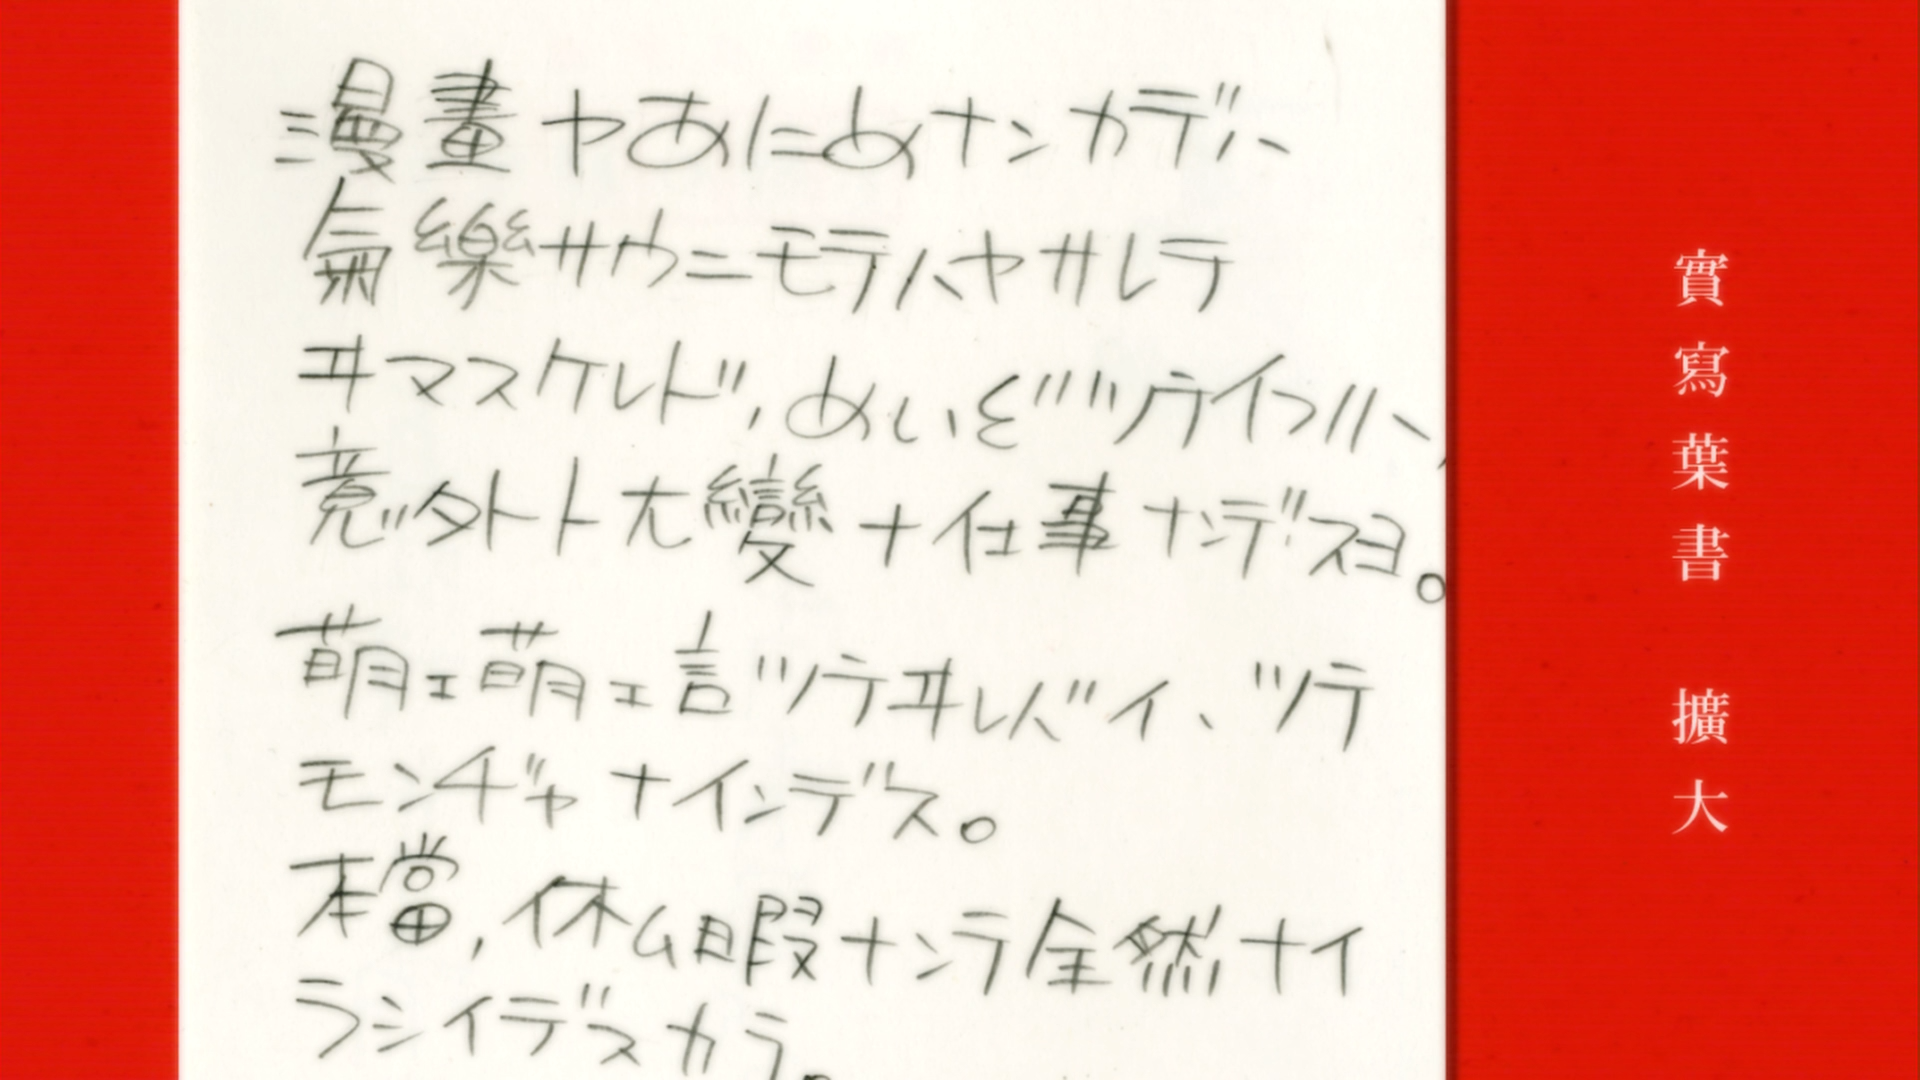 漫畫ヤあにめナンカデハ
氣樂サウニモテハヤサレテ
ヰマスケレド、めいどッテイフノハ、
意外ト大變ナ仕事ナンデスヨ。
萌エ萌エ言ッテヰレバイヽッテ
モンヂャナインデス。
本當、休ム暇ナンテ全然ナイ
ラシイデスカラ。
實寫葉書 擴大